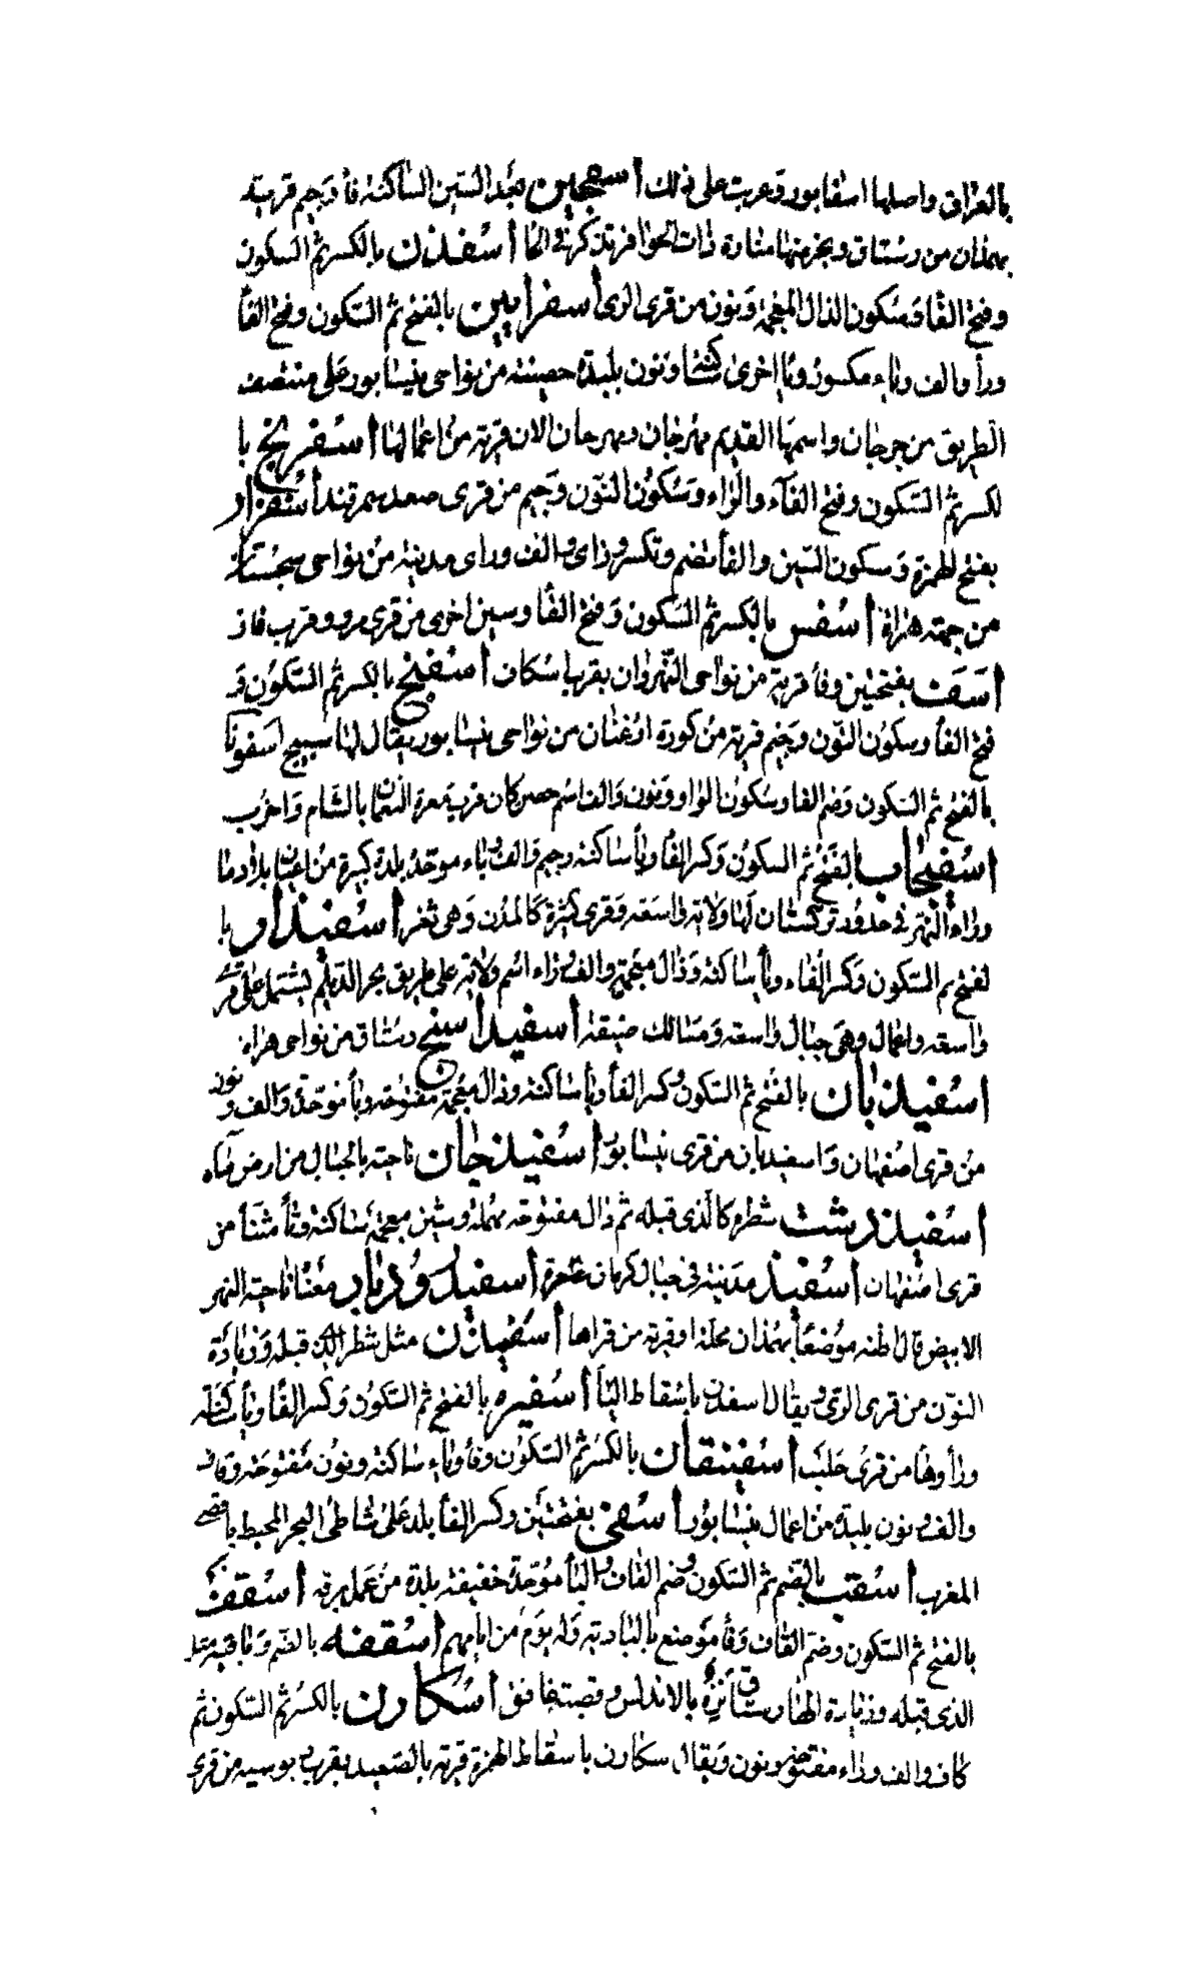 بالعراق واصلها اسفابور وعربت على ذلك أسفجين بعد السين الساكنة فا وجيم قرية
بهمذان من رستاق وبجز بها منارة ذات الحوافر تذكر في الحا أسفذن بالكسر ثم السكون
وفتح الفا وسكون الذال المعجمة ونون من قرى الرى أسفرايين بالفتح ثم السكون وفتح الفا
ورأ والف وياء مكسورة ويا اخرى ساكنة ونون بليدة حصينة من نواحى نيسابور على منتصف
الطريق من جرجان واسمها القديم مهرجان ومهرجان الان قرية من اعمالها أسفرنج با
لكسر ثم السكون وفتح الفآء والراء وسكون النون وجيم من قرى صغد سمرقند أسفزار
بفتح الهمزة وسكون السين والفا تضم وتكسر وزاى والف وراى مدينة من نواحى سجستان
من جهة هراة أسفس بالكسر ثم السكون وفتح الفا وسين اخرى من قرى مرو وقرب فاز
أسف بفتحتين وفا قرية من نواحى النهروان بقرب اسكاف أسفنج بالكسر ثم السكون و
فتح الفا وسكون النون وجيم قرية من كورة ارغيان من نواحى نيسابور يقال لها سبنج اسفونا
بالفتح ثم السكون وضم الفا وسكون الواو ونون والف اسم حصن كان قرب معرة النعمان بالشام واخرب
أسفيجاب بالفتح ثم السكون وكسر الفا ويا ساكنة وجيم والف وباء موحدة بلدة كبيرة من اعيان بلاد ما
وراء النهر فى حدود تركستان لها ولاية واسعة وقرى كثيرة كالمدن وهى ثغر أسفيذار با
لفتح ثم السكون وكسر الفاء ويا ساكنة وذال معجمة والف وراء اسم ولاية على طريق بحر الديلم تشتمل على قرى
واسعة واعمال وهى جبال واسعة ومسالك ضيقة أسفيداسنج رستاق من نواحى هراة
أسفيذبان بالفتح ثم السكون وكسر الفا ويا ساكنة وذال معجمة مفتوحة وبا موحدة والف ونون
من قرى اصفهان واسفيذبان من قرى نيسابور أسفيذجان ناحية بالجبال من ارض ماه
أسفيذدشت شطره كالذى قبله ثم دال مفتوحة مهملة وشين معجمة ساكنة وتا مثناة من
قرى اصفهان أسفيذ مدينة فى جبال كرمان عامرة أسفيذرودبار معناه ناحية النهر
الابيض قال اظنه موضعا بهمذان محلة او قرية من قراها أسفيذن مثل شطر الذى قبله وزيادة
النون من قرى الرى ويقال اسفذن باسقاط اليا أسفيره بالفتح ثم السكون وكسر الفا ويا ساكنة
ورا وها من قرى حلب أسفينقان بالكسر ثم السكون وفا وياء ساكنة ونون مفتوحة وقاف
والف ونون بليدة من اعمال نيسابور أسفى بفتحتين وكسر الفا بلد على شاطئ البحر المحيط باقصى
المغرب أسقب بالضم ثم السكون وضم القاف والبا موحدة خفيفة بلدة من عمل برقة أسقف
بالفتح ثم السكون وضم القاف وفا موضع بالبادية وله يوم من ايامهم أسقفه بالضم وباقيه مثل
الذى قبله وزيادة الهاء رستاق نزه بالاندلس وقصبته غافق أسكارن بالكسر ثم السكون ثم
كاف والف وراء مفتوحة ونون ويقال سكارن باسقاط الهمزة قرية بالصغد بقرب دبوسية من قرى